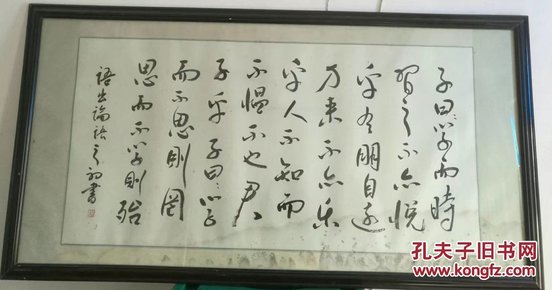 子曰学而時
習之不亦悦
乎有朋自遠
方来不亦乐
乎人不知而
不愠不亦君
子乎子曰学
而不思則罔
思而不学則殆
語出論語之初書
孔夫子旧书网
www.kongfz.com